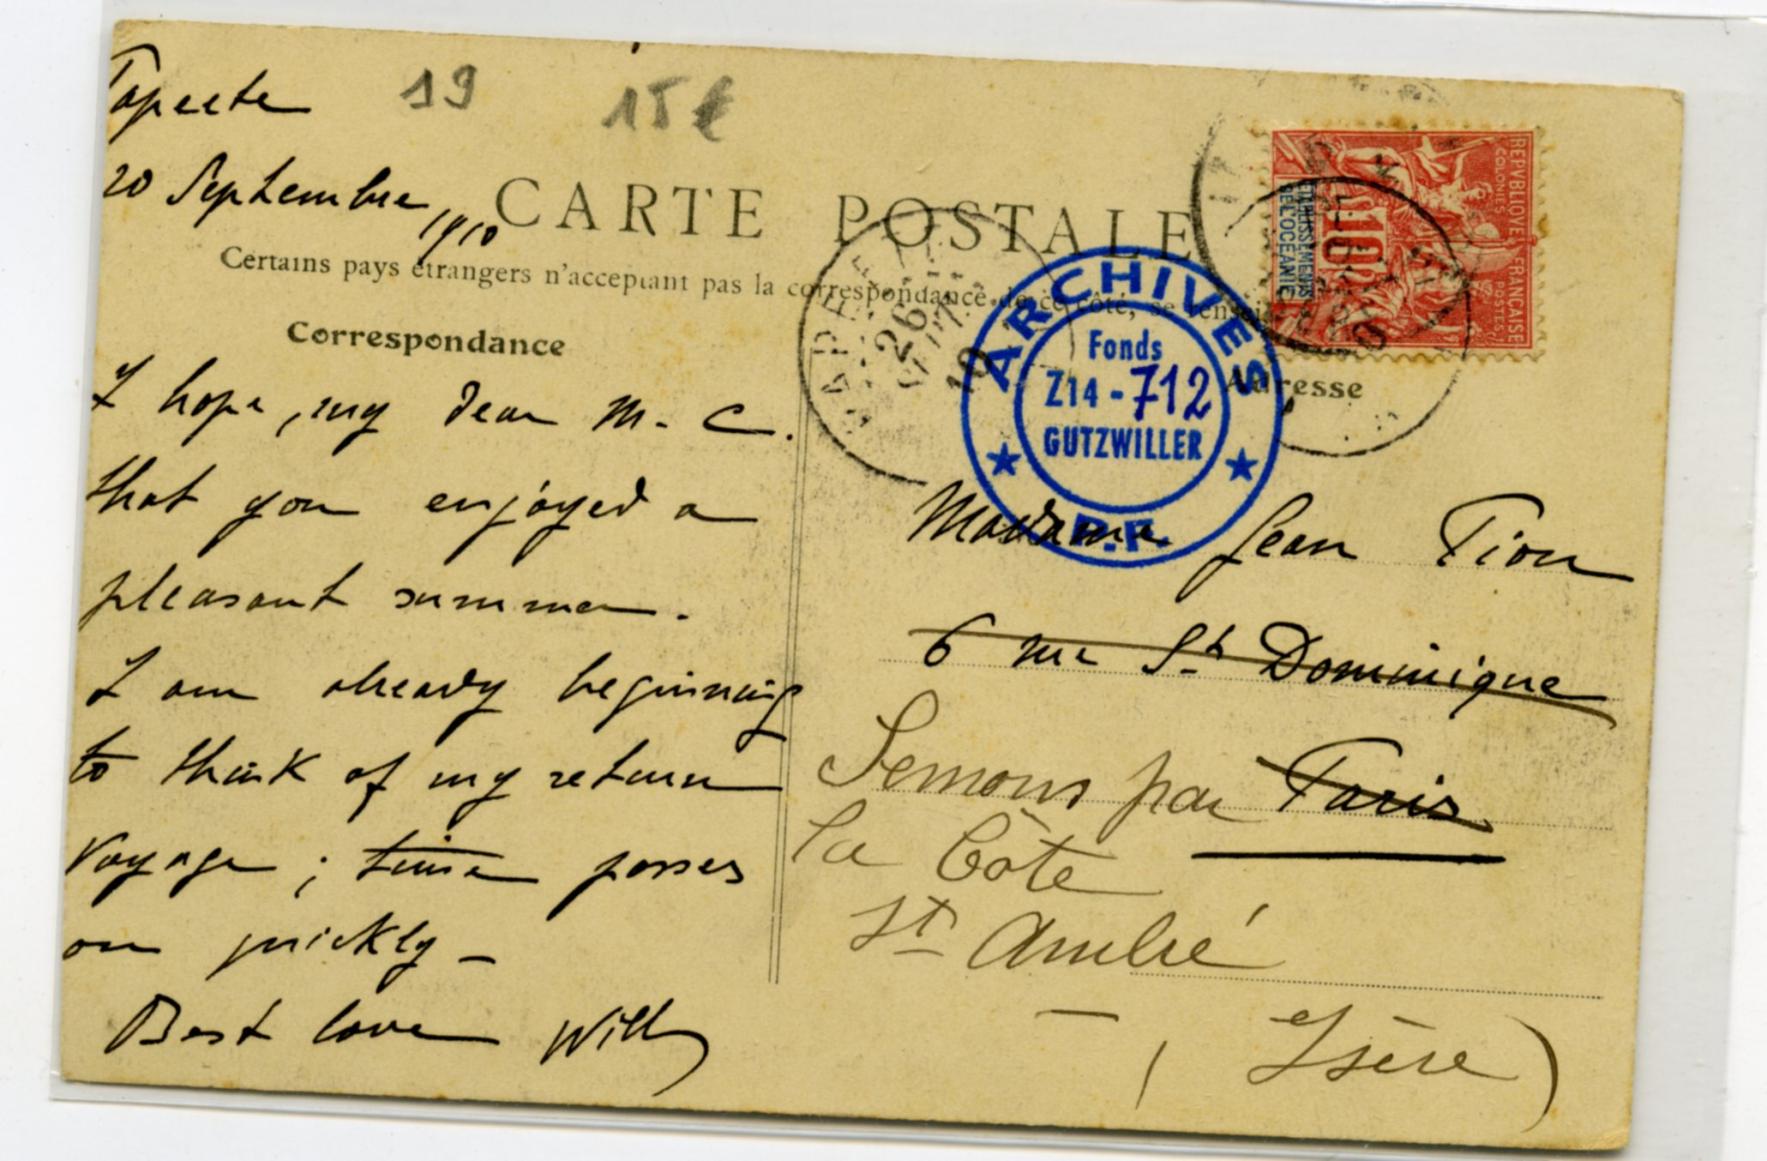 Papeete
19
15€
20 Septembre 1910
CARTE POSTALE
Certains pays étrangers n'acceptent pas la correspondance de ce côté, se
Correspondance
Adresse
I hope, my dear M. C.
that you enjoyed a
pleasant summer.
I am already beginning
to think of my return
voyage ; time passes
on quickly –
Best love Willy
PAPEETE
26
10
ARCHIVES
Fonds
Z14-712
GUTZWILLER
P.F.
REPUBLIQUE FRANCAISE
COLONIES
POSTES
10
ETABLISSEMENTS
DE L'OCEANIE
Madame Jean Tion
6 rue St Dominique
Paris
Semons par
la Côte
St André
– (Isère)